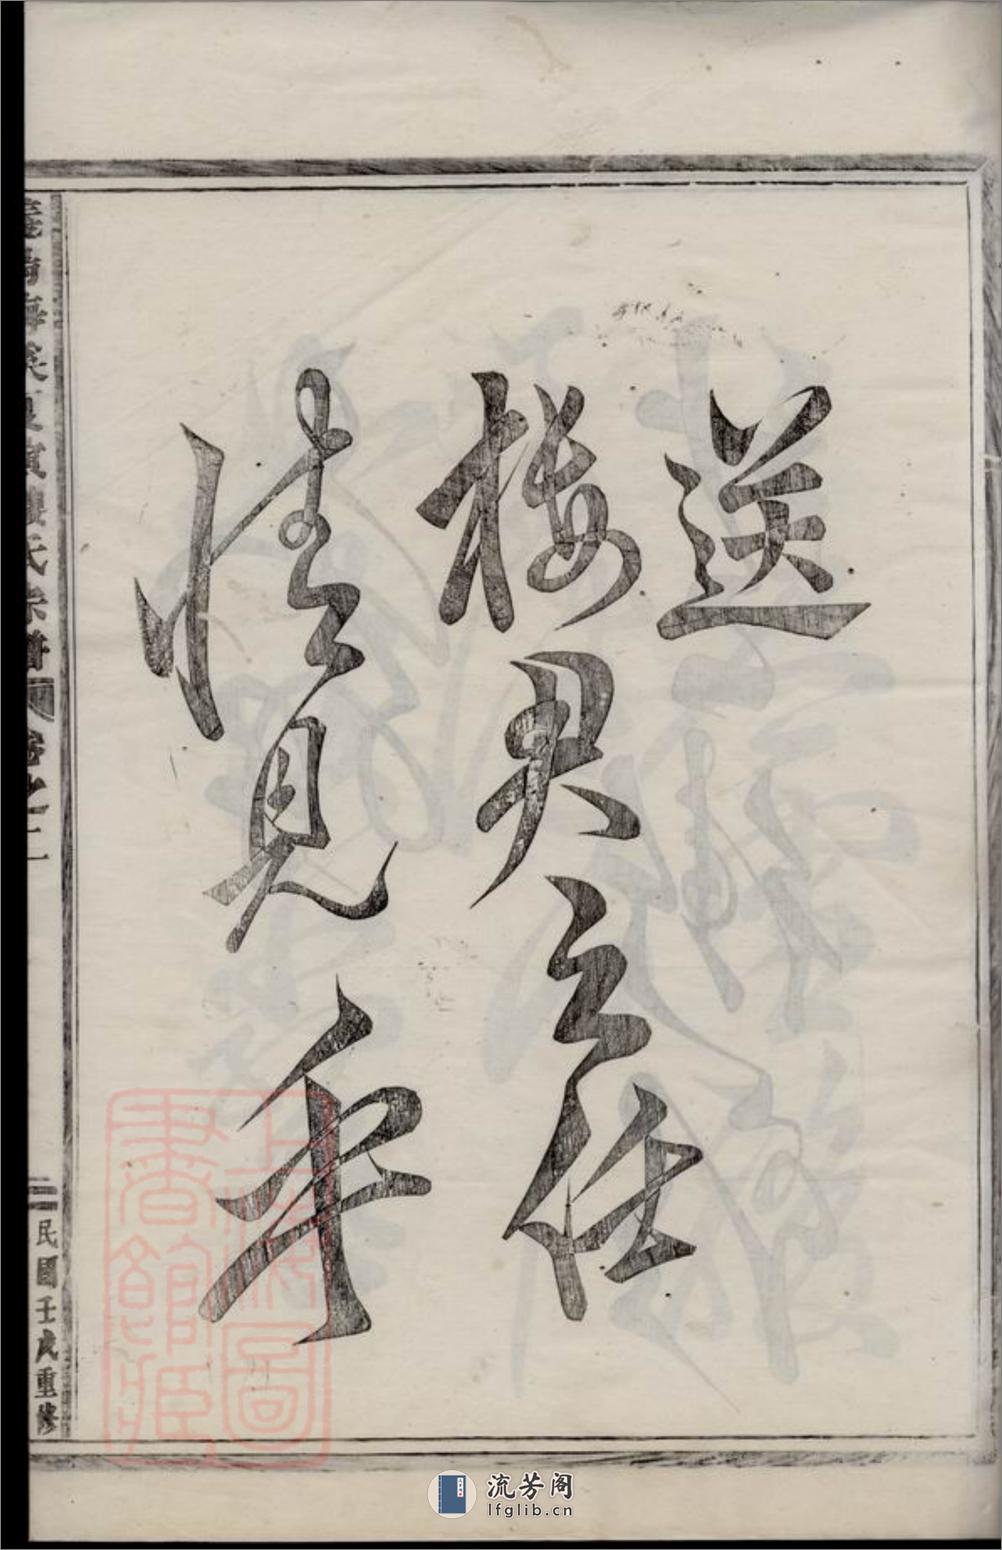 送
樓君之任
情見乎
樓氏宗譜
卷之二
民國壬戌重修
上海圖
書館藏
流芳阁
lfglib.cn